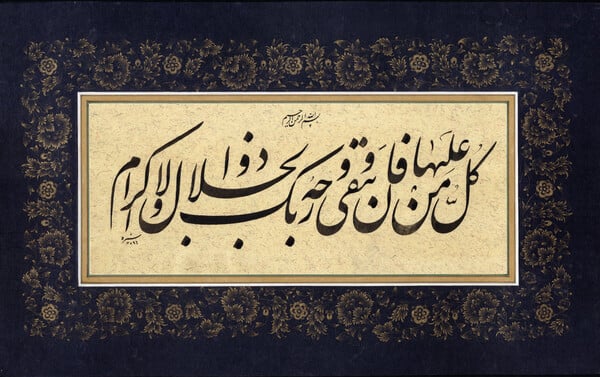 بسم الله الرحمن الرحیم
کل من علیها فان و یبقی وجه ربک ذو الجلال والاکرام